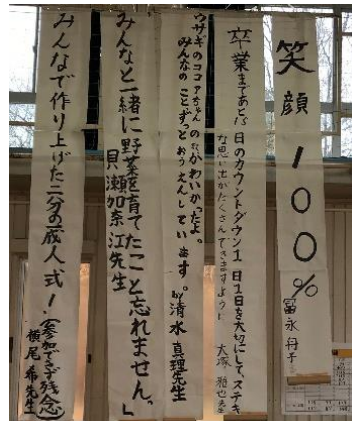 笑顔100%
冨永 舟子
卒業まであと 日のカウントダウン1日1日を大切にして、ステキ
な思い出がたくさんできますように 大塚
ウサギのココアちゃん かわいかったよ。
みんなのことずっとおうえんしています。by清水真理先生
みんなと一緒に野菜を育てたこと忘れません。」
貝瀬加奈江先生
みんなで作り上げた二分の一成人式!(参加できず残念)
横尾 希先生